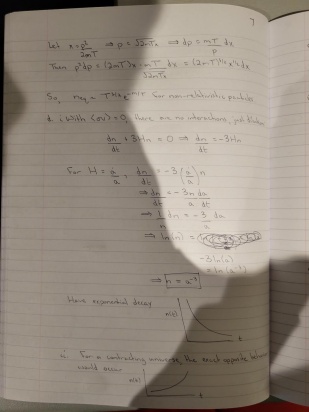 7
Let x = p²/2mT ⇒ p = √2mTx ⇒ dp = mT/p dx
Then p²dp = (2mT)x mT/√2mTx dx = (2mT)^3/2 x^½ dx
So, n_eq ~ T^3/2 e^-m/T for non-relativistic particles
d. i. With ⟨σv⟩ = 0, there are no interactions, just dilution
dn/dt + 3Hn = 0 ⇒ dn/dt = -3Hn
For H = ȧ/a, dn/dt = -3(ȧ/a)n
⇒ dn/dt = -3n/a da/dt
⇒ 1/n dn = -3/a da
⇒ ln(n) =
-3ln(a)
= ln(a⁻³)
⇒ n = a⁻³
Have exponential decay
n(t)
t
ii. For a contracting universe, the exact opposite
would occur
n(t)
t